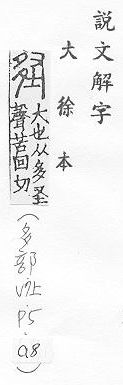 說文解字
大徐本
大也从多圣
聲苦回切
(多部 V7上 P5.08)